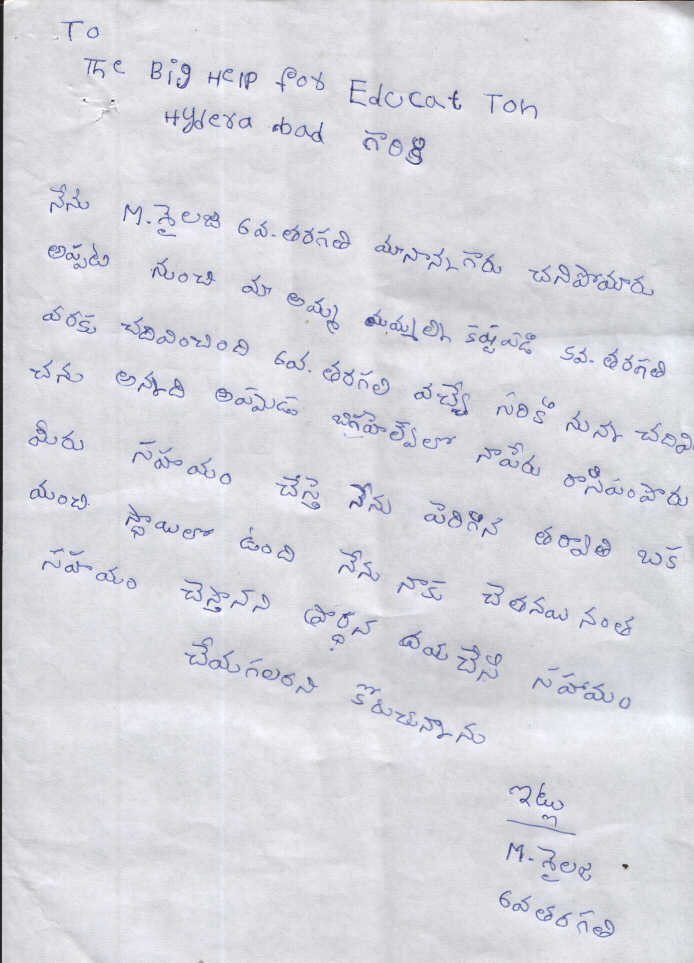 To
The Big Help for Educat Ton
Hydera abad గారికి
నేను M.శైలజ 6వ.తరగతి మానాన్నగారు చనిపోయారు
అప్పటి నుంచి మా అమ్మ మమ్మల్ని కష్టపడి 5వ.తరగతి
వరకు చదివించింది 6వ.తరగతి వచ్చే సరికి నున్న చదివి
చను అన్నది అప్పుడు బిగ్‌హెల్ప్‌లో నాపేరు రాసిపంపారు
మీరు సహాయం చేస్తె నేను పెరిగిన తర్వాతి ఒక
మంచి స్థాయిలో ఉంది నేను నాకు చెతనయి నంత
సహాయం చెస్తానని ప్రార్థన దయచేసి సహాయం
చేయగలరని కోరుచున్నాను
ఇట్లు
M-శైలజ
6వతరగతి